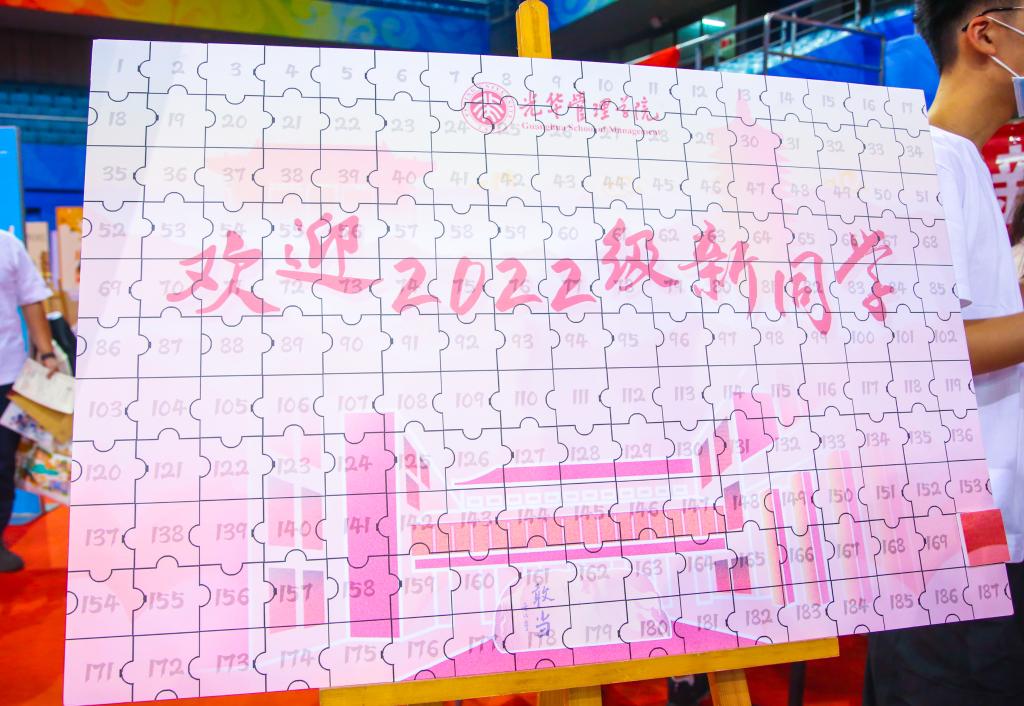 光华管理学院
Guanghua School of Management
欢迎2022级新同学
1 2 3 4 5 6 7 8 9 10 11 12 13 14 15 16 17
18 19 20 21 22 23 24 25 26 27 28 29 30 31 32 33 34
35 36 37 38 39 40 41 42 43 44 45 46 47 48 49 50 51
52 53 54 55 56 57 58 59 60 62 63 64 65 66 67 68
69 70 72 73 74 75 76 77 78 79 80 81 82 83 84 85
86 87 88 89 90 91 92 93 94 95 96 97 98 99 100 101 102
103 104 105 106 107 108 109 110 111 112 113 114 115 116 117 118 119
120 121 122 123 124 125 126 127 128 129 130 131 132 133 134 135 136
137 138 139 140 141 142 143 144 145 146 147 148 149 150 151 152 153
154 155 156 157 158 159 160 161 162 163 164 165 166 167 168 169
敢当
171 172 173 174 175 176 177 178 179 180 181 182 183 184 185 186 187